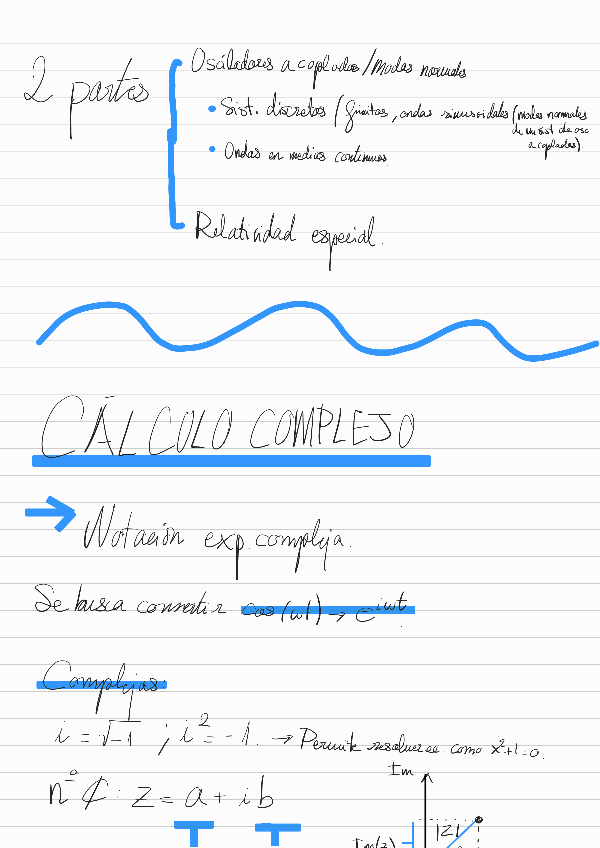 2 partes
Osciladores acoplados/Modos normales
• Sist. discretos (finitos, ondas sinusoidales (modos normales
de un sist de osc
acoplados).
• Ondas en medios continuos
Relatividad especial.
CÁLCULO COMPLEJO
→ Notación exp compleja.
Se busca convertir cos(ωt) → e^iωt.
Complejos:
i = √-1 ; i² = -1. → Permite resolver ec como x²+1=0.
nº ₵: z = a + ib
Im
|z|
Im(z)